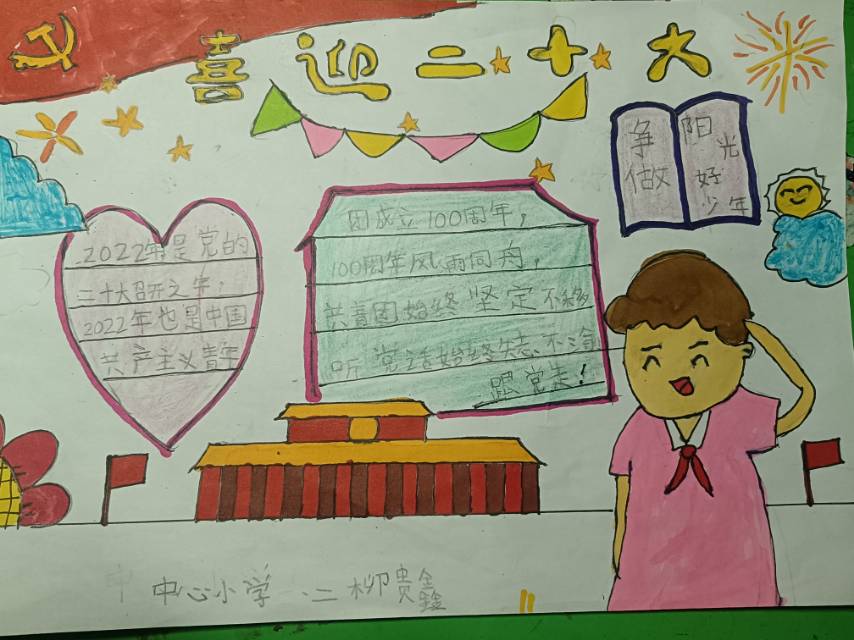 喜迎二十大
争做
阳光
好少年
2022年是党的
二十大召开之年，
2022年也是中国
共产主义青年
团成立100周年，
100周年风雨同舟，
共青团始终坚定不移
听党话始终矢志不渝
跟党走！
中心小学 二 柳贵鑫